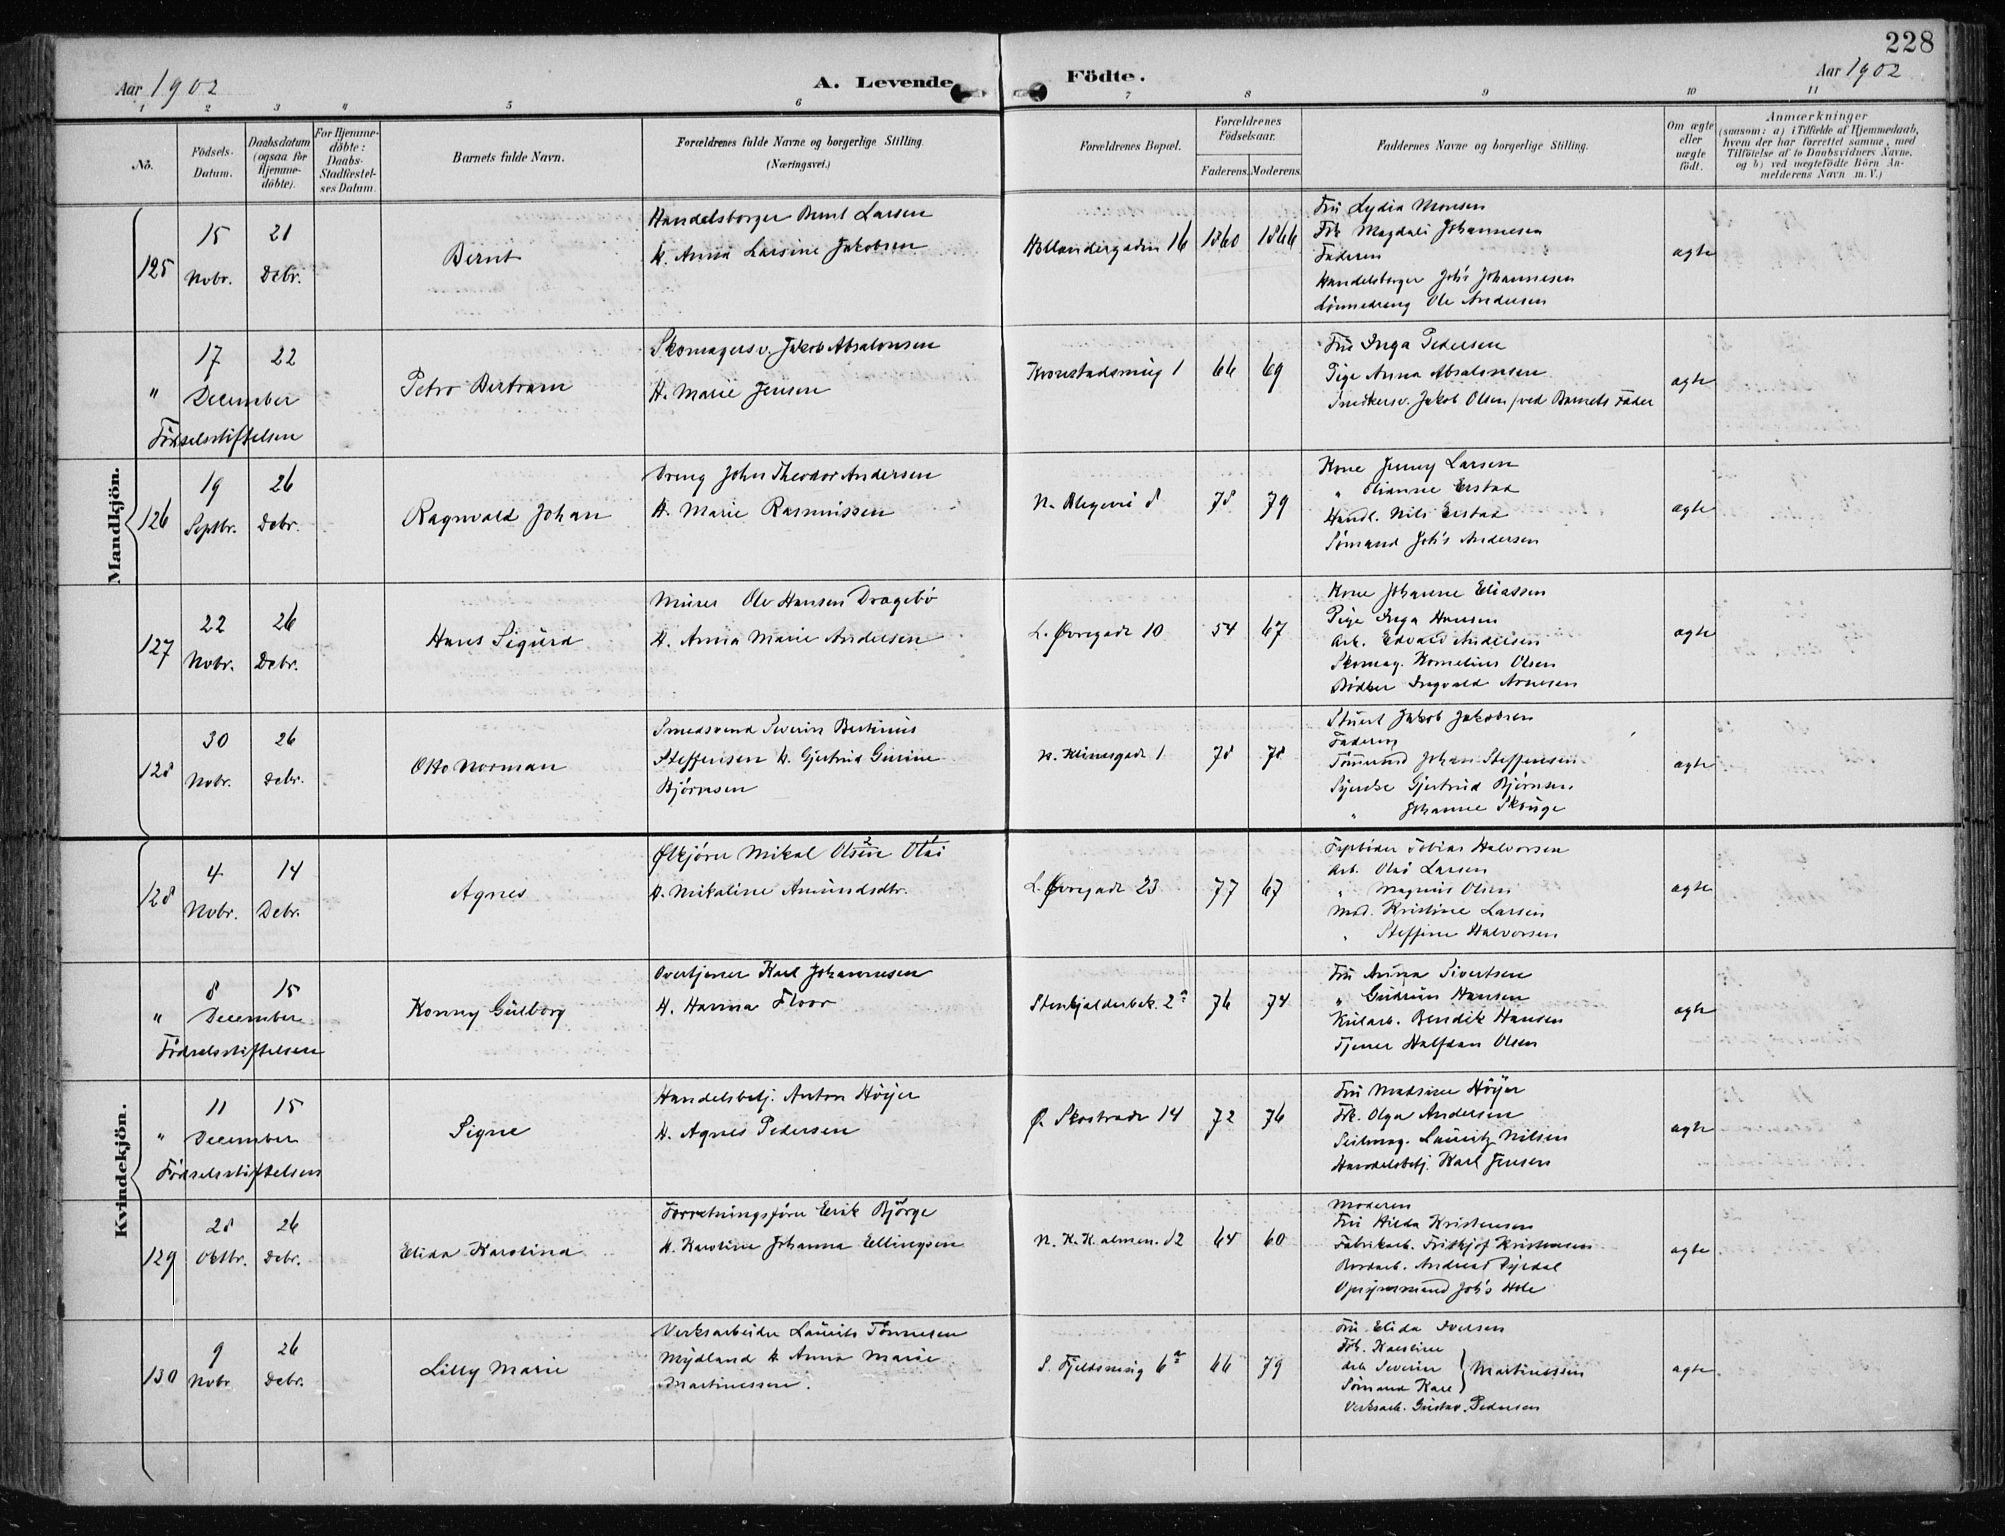 228
Aar 1902
A. Levende Födte.
Aar 1902
1 2 3 " 5 6 7 8 9 10 11
No.
Födsels-Datum.
Daabsdatum (ogsaa for Hjemme-döbte).
For Hjemme-döbte: Daabs-Stadfæstel-ses Datum.
Barnets fulde Navn.
Forældrenes fulde Navne og borgerlige Stilling.
(Næringsvei.)
Forældrenes Bopæl.
Forældrenes Födselsaar.
Faderens. Moderens.
Faddernes Navne og borgerlige Stilling.
Om ægte eller uægte födt.
Anmærkninger
(saasom: a) i Tilfælde af Hjemmedaab, hvem der har forrettet samme, med Tilföielse af to Daabsvidners Navne. og b) ved uægtefödte Börn An-melderens Navn m. V.)
Mandkjön.
125
15 Novbr.
21 Debr.
Bernt
Handelsborger Bernt Larsen
H. Anna Larsine Jakobsen
Hollændergaden 16
1860 1866
Fru Lydia Monsen
Frk Magdali Johannesen
Faderen
Handelsborger Joh's Johannesen
Lønnedreng Ole Andersen
ægte
" 17 22
December
Fødselsstiftelsen
Petro Bertram
Skomagersv. Jakob Absalonsen
H. Marie Jensen
Kronstadsmug 1
66 69
Fru Inga Pedersen
Pige Anna Absalonsen
Snedkersv. Jakob Olsen /ved Barnets Fader
ægte
126
19 Septbr.
26 Debr.
Ragnvald Johan
Dreng John Theodor Andersen
H. Marie Rasmussen
N. Blegevei 8
78 79
Kone Jenny Larsen
" Olianne Erstad
Handl. Nils Erstad
Sømand Joh's Andersen
ægte
127
22 Novbr.
26 Debr.
Hans Sigurd
Murer Ole Hansen Dragebø
H. Anna Marie Andersen
L. Øvregade 10
54 67
Kone Johanne Eliassen
Pige Inga Hansen
Arb. Edvard Andersen
Skomag. Kornelius Olsen
Bødker Ingvald Arnesen
ægte
128
30 Novbr.
26 Debr.
Otto Norman
Smedsvend Severin Bertinius
Steffensen H. Gjertrud Gurine
Bjørnsen
78 78
Stuert Jakob Jakobsen
Faderen
Tømmermd Johan Steffensen
Syerske Gjertrud Bjørnsen
" Johanne Skauge
ægte
Kvindekjön.
128
4 Novbr.
14 Debr.
Agnes
Ølkjører Mikal Olsen Olai
H. Mikaline Amundsdtr.
L. Øvregade 23
77 67
Tobias Halvorsen
Arb. Olai Larsen
" Magnus Olsen
Mad. Kristine Larsen
" Steffine Halvorsen
ægte
" 8 15
December
Fødselsstiftelsen
Konny Gulborg
Overtjener Karl Johannesen
H. Hanna Floor
Stenkjelderbek. 2a
76 74
Fru Anna Sivertsen
" Gudrun Hansen
Kularb. Bendik Hansen
Tjener Halfdan Olsen
ægte
" 11 15
December
Fødselsstiftelsen
Signe
Handelsbetj. Anton Höyer
H. Agnes Pedersen
Ø. Skostræde 14
72 76
Fru Madsine Höyer
Frk. Olga Andersen
Seilmag. Lauritz Nilsen
Handelsbetj. Karl Jensen
ægte
129
28 Oktbr.
26 Debr.
Elida Karolina
Forretningsfører Erik Björge
H. Karoline Johanna Ellingsen
N. K.K. almen. 82
64 60
Moderen
Fru Hilda Kristensen
Fabrikarb. Fritkjof Kristensen
Andreas
Opsynsmand Joh's Hole
ægte
130
9 Novbr
26 Debr.
Lilly Marie
Verksarbeider Laurits Tønnesen
Mydland H. Anna Marie
Martinessen.
S. Fjeldsmug 6a
66 79
Fru Elida Iversen
Frk. Karoline
Arb. Severin } Martinessen
Sømand Karl
Verksarb. Gustav Pedersen
ægte